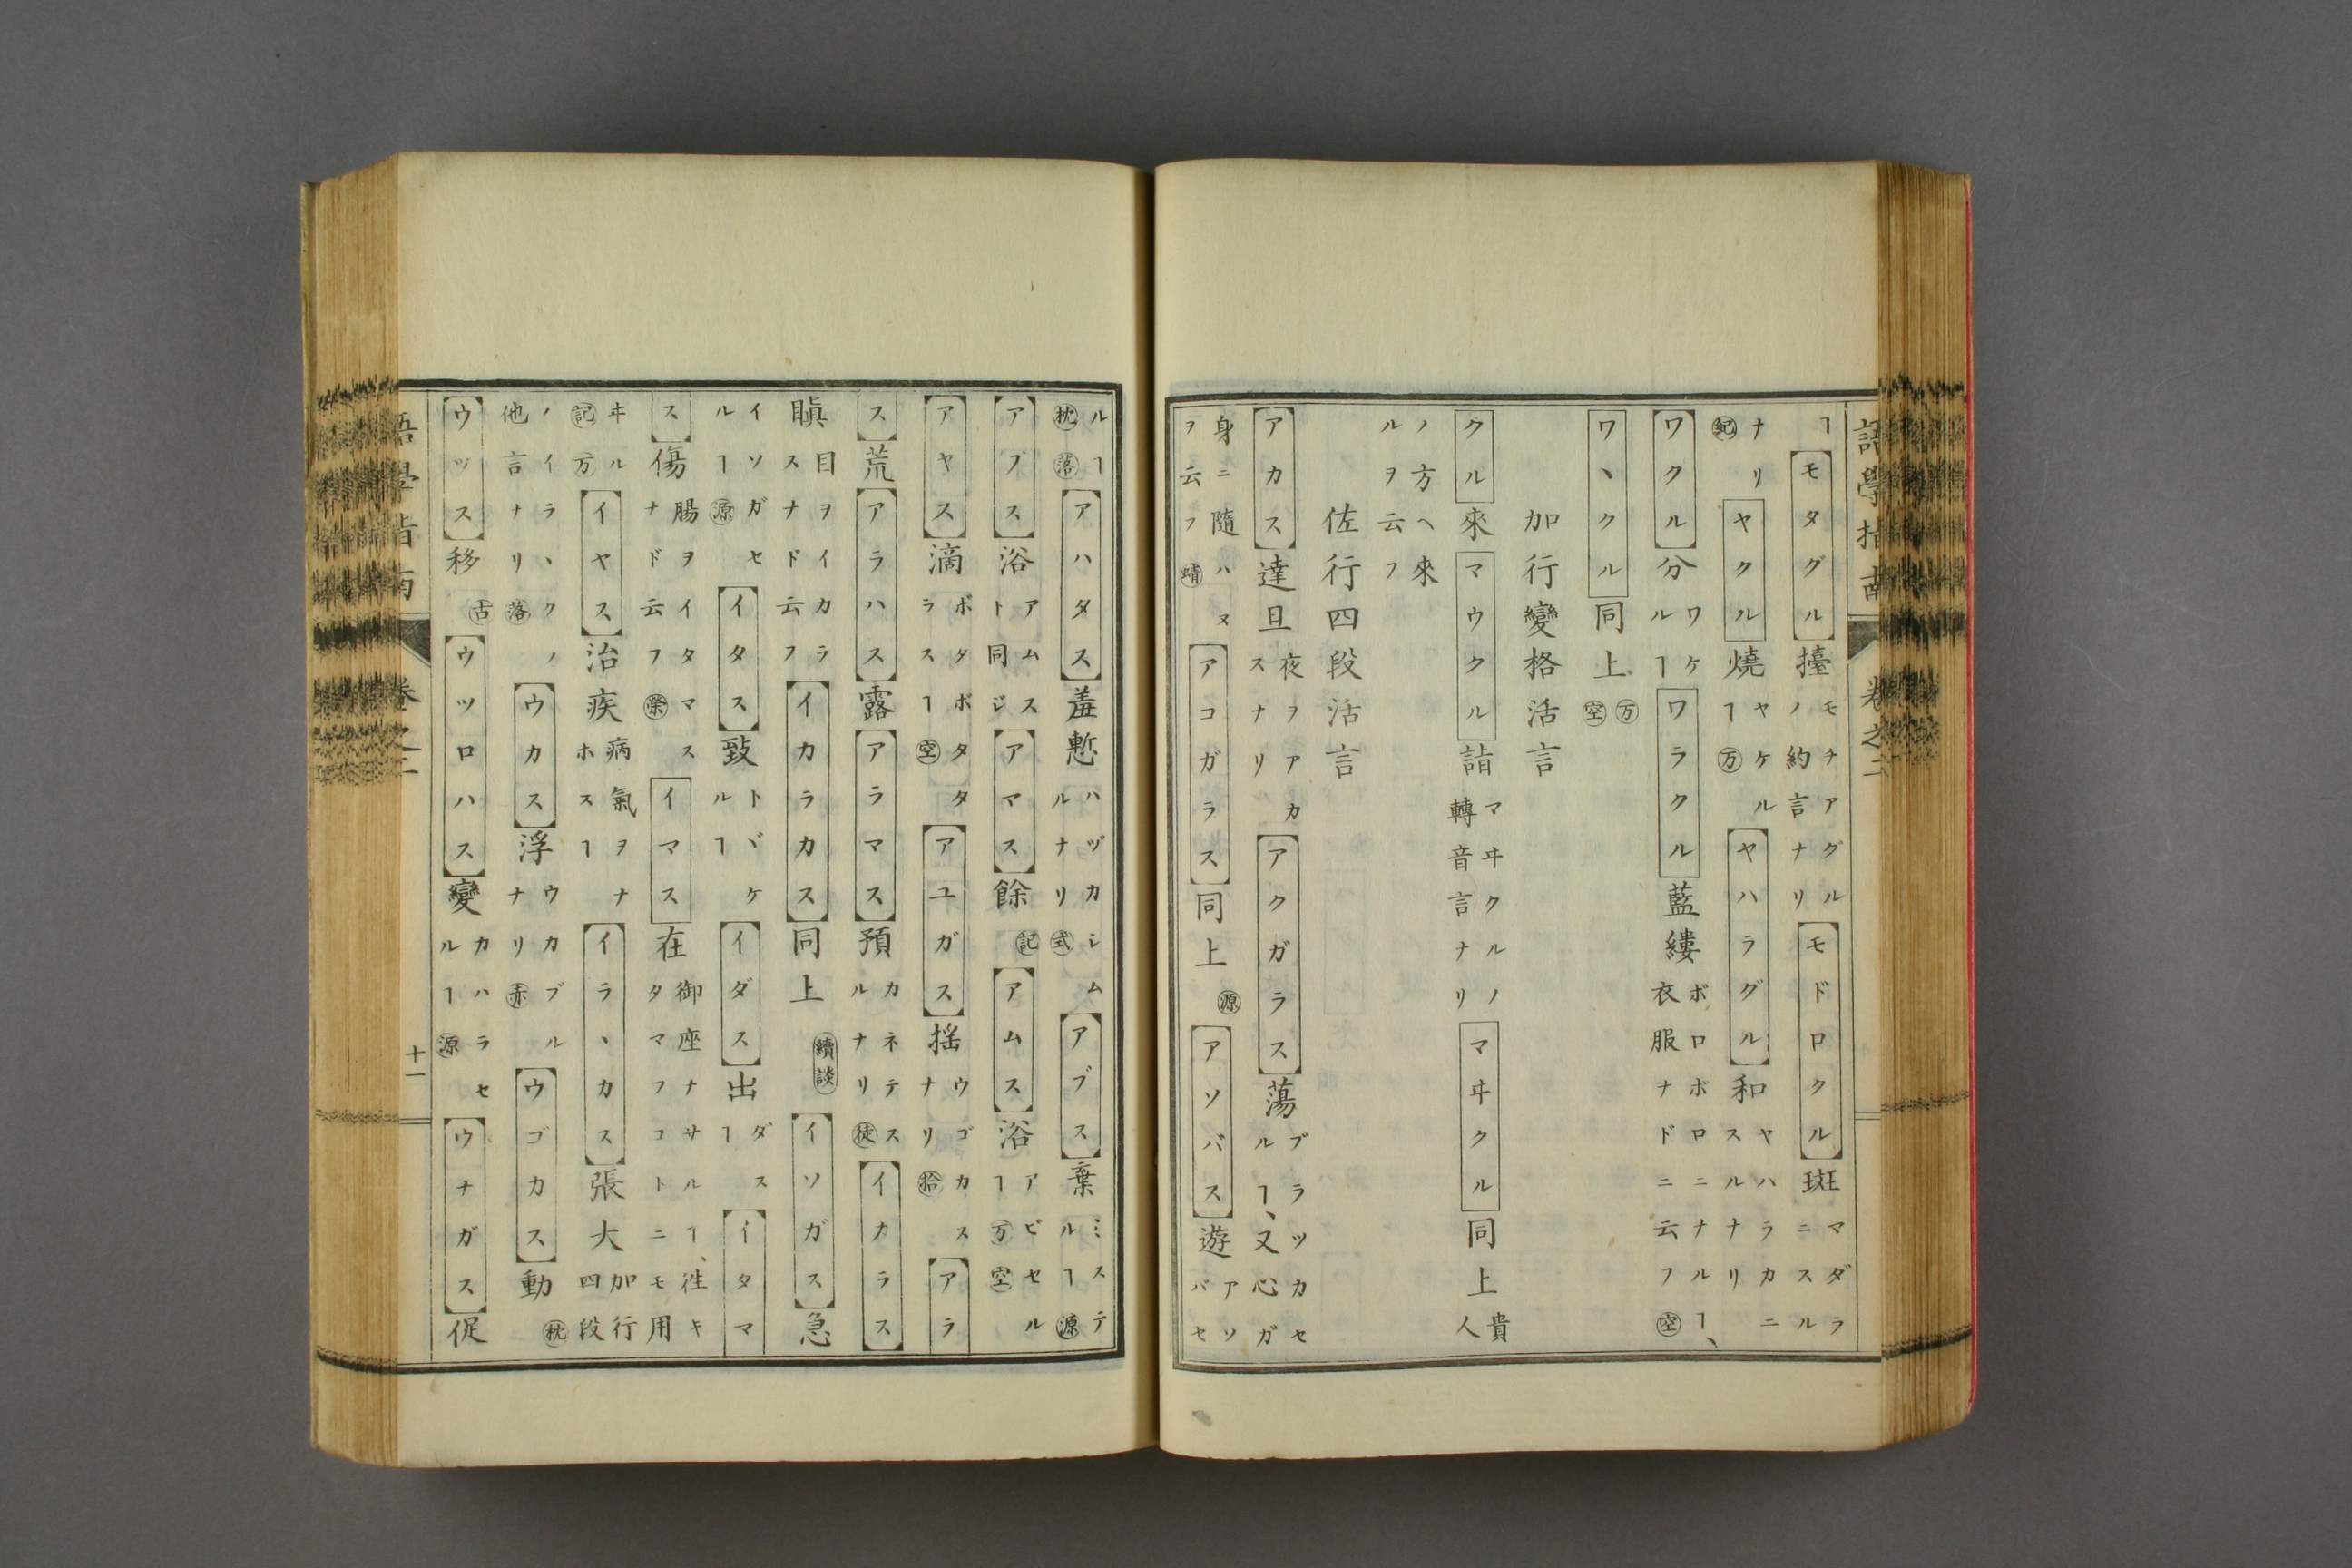 語學指南　卷之二
ヿモタグル擡モチアグルノ約言ナリモドロクル斑マダラニスル
ナリ紀ヤクル燒ヤケルヿ万ヤハラグル和ヤハラカニスルナリ
ワクル分ワケルヿワラクル藍縷ボロボロニナルヿ、衣服ナドニ云フ空
ワヽクル同上万空
加行變格活言
クル來マウクル詣マヰクルノ轉音言ナリマヰクル同上貴人
ノ方ヘ來ルヲ云フ
佐行四段活言
アカス達旦夜ヲアカスナリアクガラス蕩ブラツカセルヿ、又心ガ
身ニ隨ハヌヲ云フ蜻アコガラス同上源アソバス遊アソバセ
ルヿ枕落アハタス羞慙ハヅカシムルナリ式アブス棄ミステルヿ源
アブス浴アムスト同ジアマス餘記アムス浴アビセルヿ万空
アヤス滴ボタボタタラスヿ空アユガス搖ウゴカスナリ拾アラ
ス荒アラハス露アラマス預カネテスルナリ徒イカラス
瞋目ヲイカラスナド云フイカラカス同上續談イソガス急
イソガセルヿ源イタス致トヾケルヿイダス出ダスヿイタマ
ス傷腸ヲイタマスナド云フ榮イマス在御座ナサルヿ、徃キタマフコトニモ用
ヰル記万イヤス治疾病氣ヲナホスヿイラヽカス張大加行四段
ノイラヽクノ他言ナリ落ウカス浮ウカブルナリ赤ウゴカス動枕
ウツス移古ウツロハス變カハラセルヿ源ウナガス促
語學指南　卷之二　十一